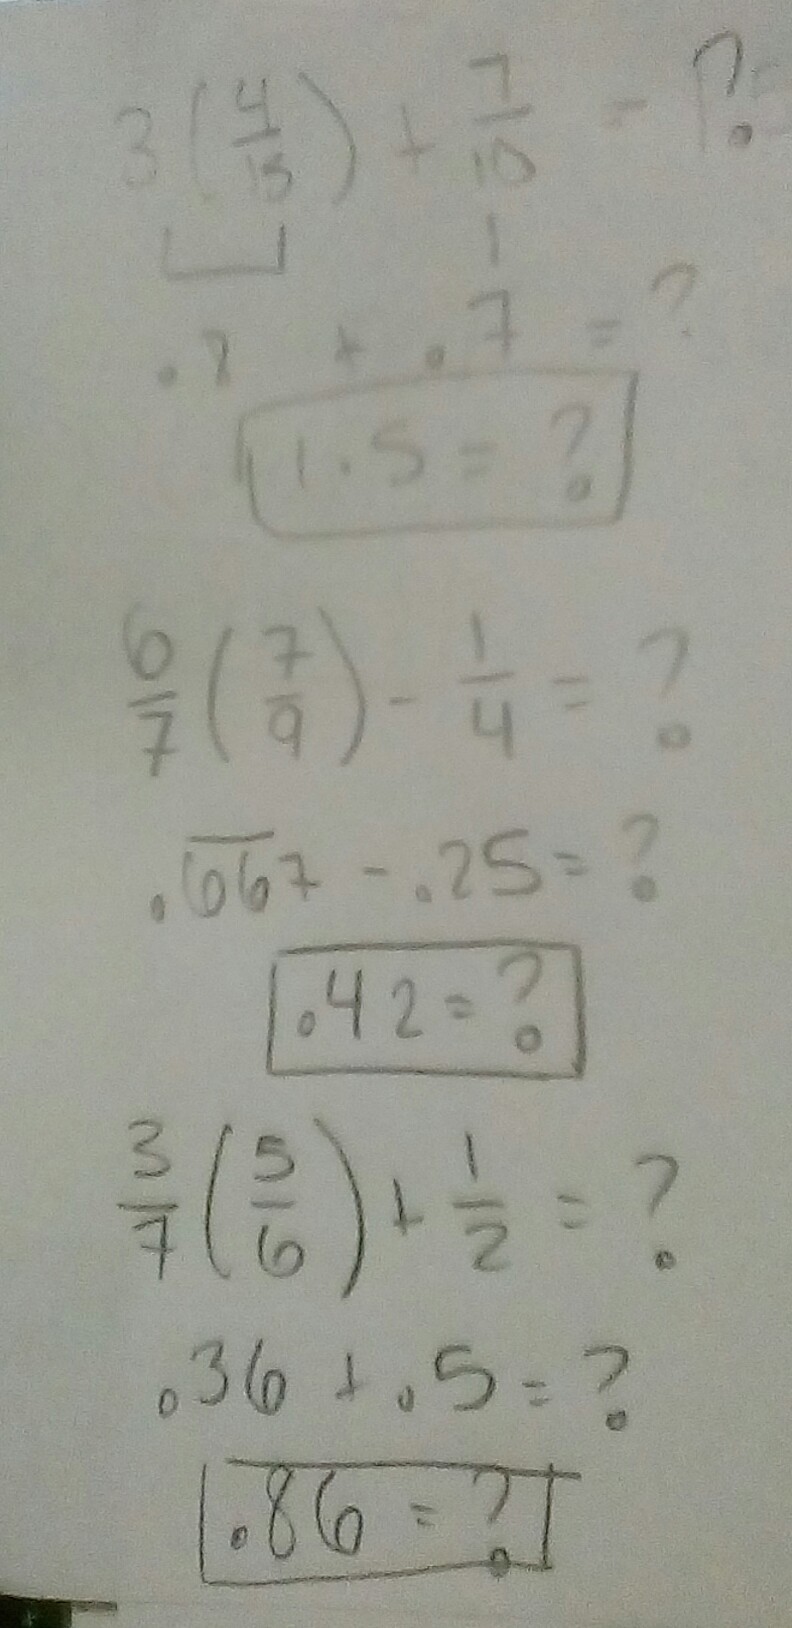 3(4/15) + 7/10 = ?
.8 + .7 = ?
1.5 = ?
6/7(7/9) - 1/4 = ?
.6̅6̅7 - .25 = ?
.42 = ?
3/7(5/6) + 1/2 = ?
.36 + .5 = ?
.86 = ?